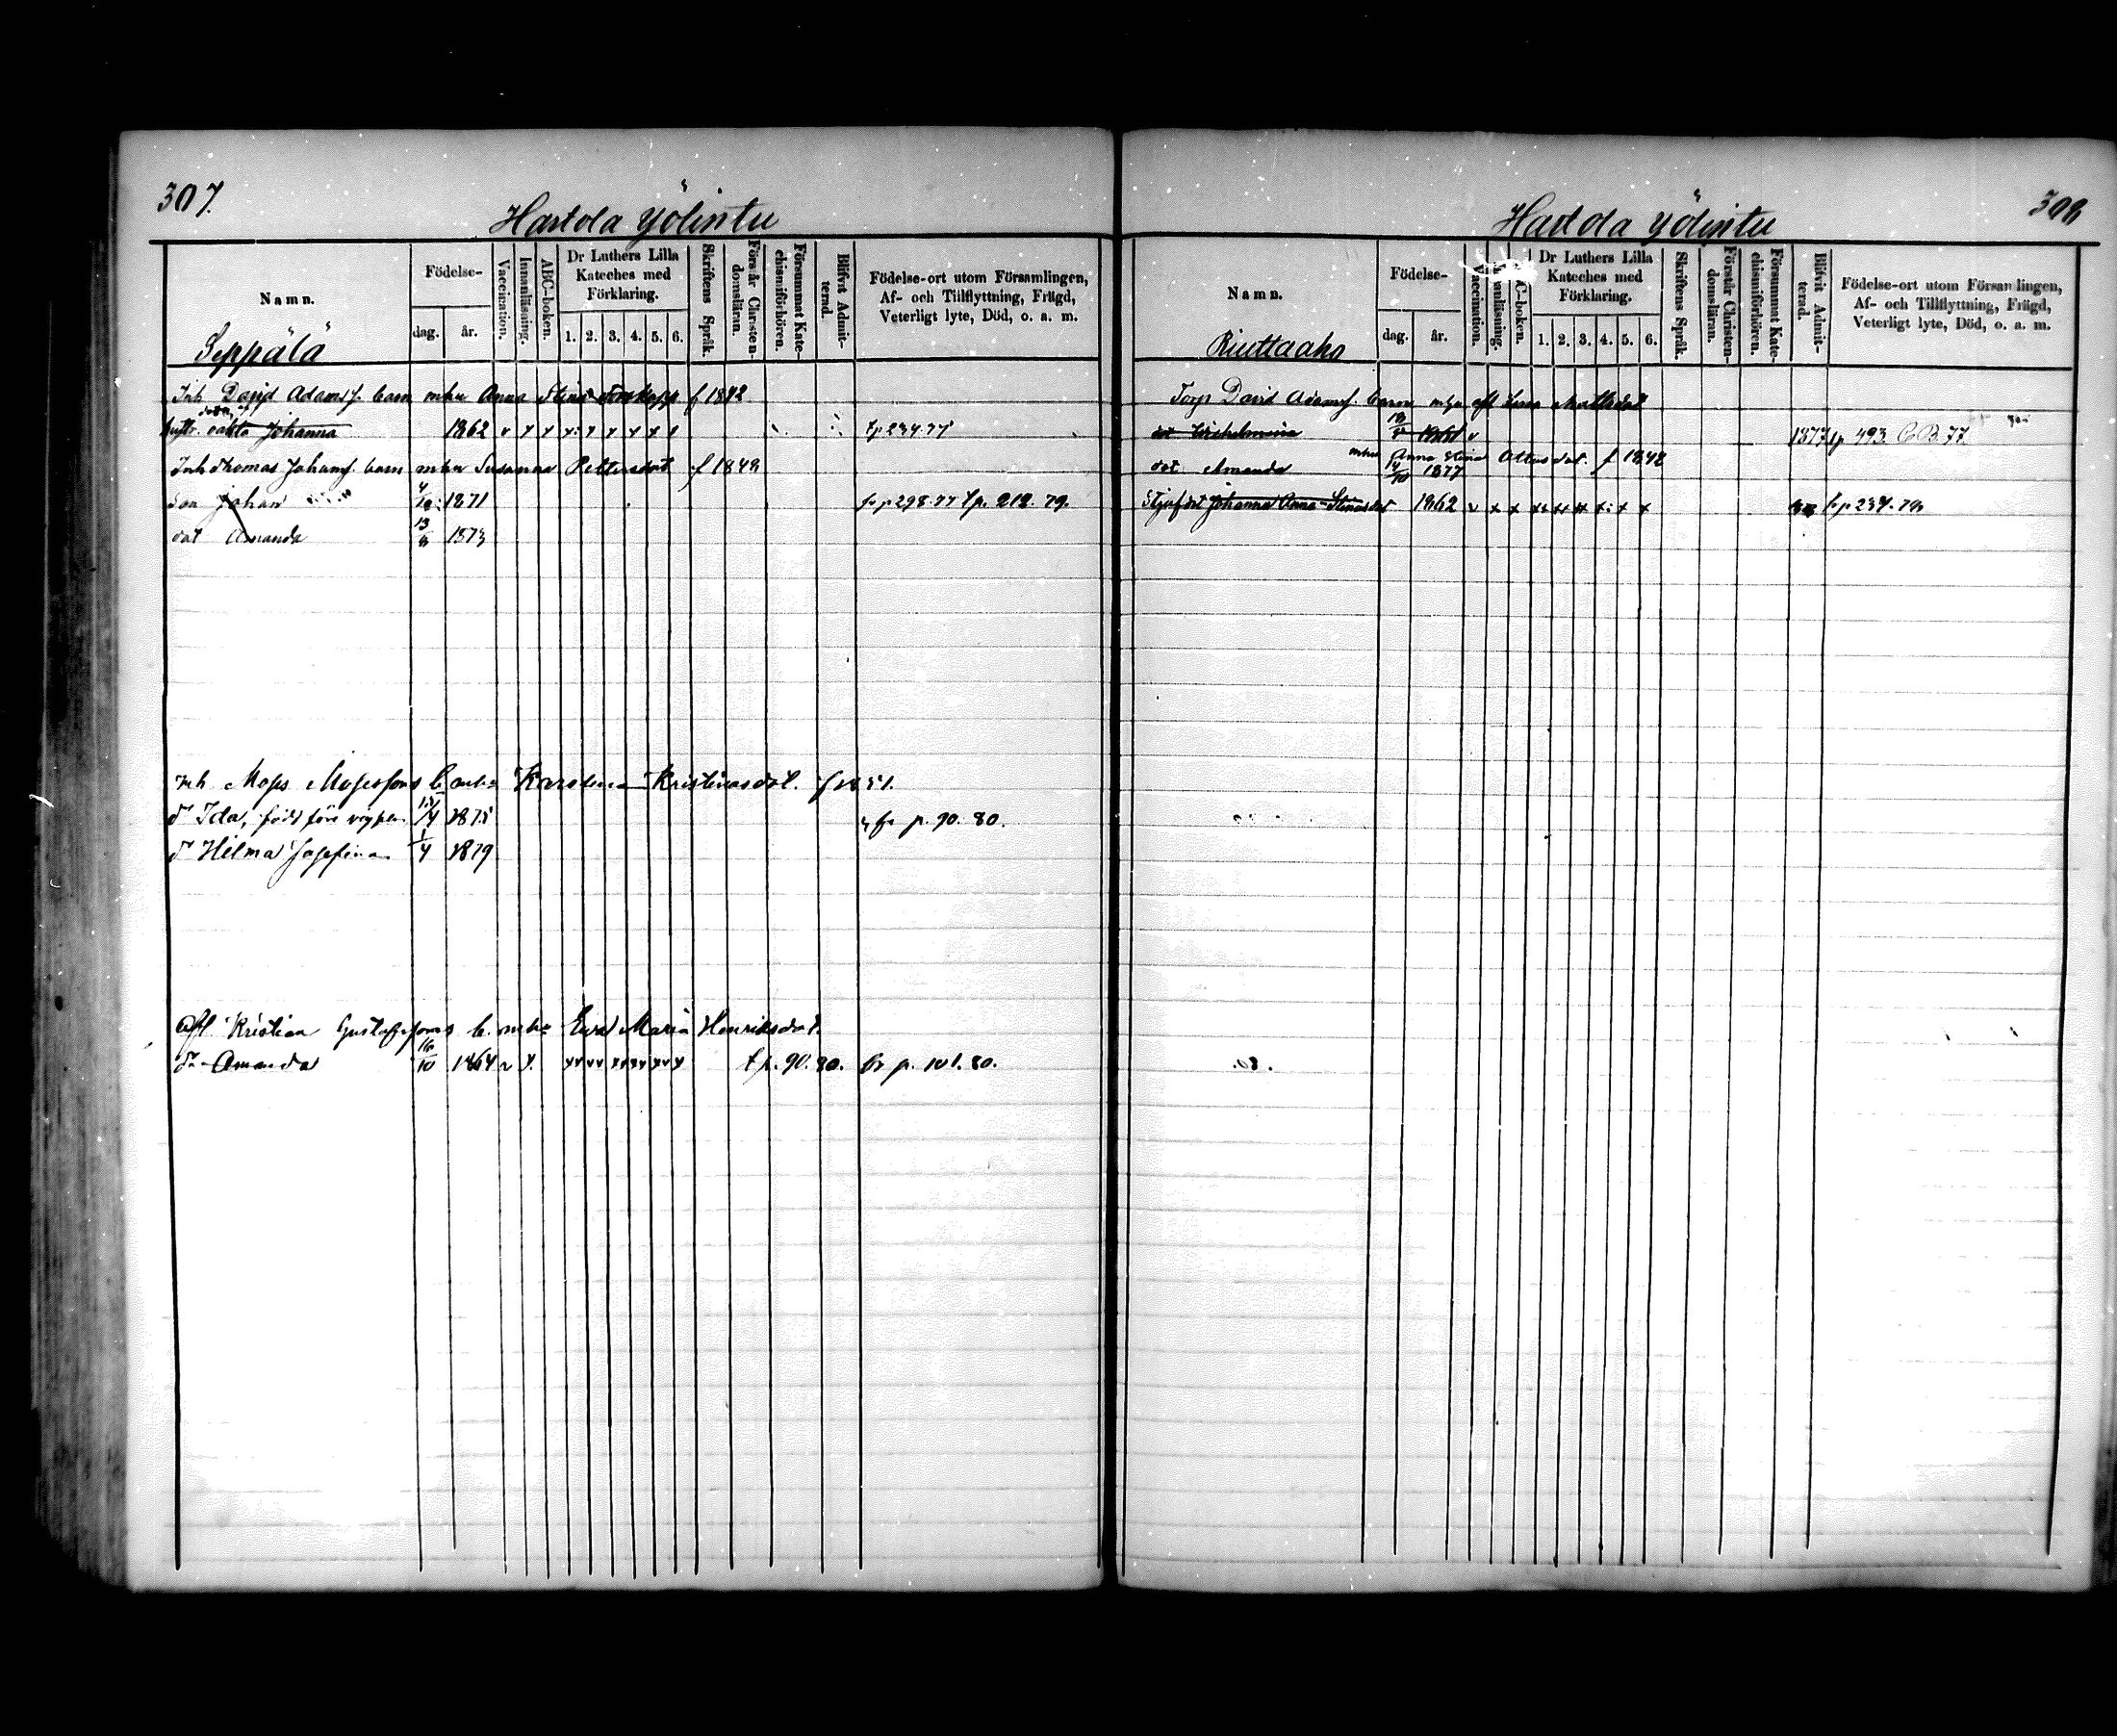 307.
Hartola Yölintu
Namn.
Födelse-
dag.
år.
Vaccination.
Innanläsning.
ABC-boken.
Dr Luthers Lilla Kateches med Förklaring.
1. 2. 3. 4. 5. 6.
Skriftens Språk.
Förstår Christendomsläran.
Försummat Katechismiförhören.
Blifvit Admitterad.
Födelse-ort utom Församlingen, Af- och Tillflyttning, Frägd, Veterligt lyte, Död, o. a. m.
Seppälä
Inh David Adamsf. barn mhu Anna Stina f 1842
Johanna 1862 v t p 234. 77
Inh Thomas Johansf. barn mhu Susanna Pettersdot f 1849
son Johan 4/12 1871 fr p 298. 77 t p. 212. 79.
dot Amanda 13/8 1873
Inh Moses Mosessons b. mhu Karolina Kristinasdot. f 1851.
d:r Ida, född före vigseln 13/4 1875 fr p. 90. 80.
d:r Hilma Josefina 1/4 1879
Afl Kristian Gustafssons b. mhu Eva Maria Henriksdot.
d:r Amanda 16/10 1864 v t p. 90. 80. fr p. 101. 80.
308
Hartola Yölintu
Namn.
Födelse-
dag.
år.
Vaccination.
Innanläsning.
C-boken.
Dr Luthers Lilla Kateches med Förklaring.
1. 2. 3. 4. 5. 6.
Skriftens Språk.
Förstår Christendomsläran.
Försummat Katechismiförhören.
Blifvit Admitterad.
Födelse-ort utom Församlingen, Af- och Tillflyttning, Frägd, Veterligt lyte, Död, o. a. m.
Riuttaaho
Torp David Adamsf. barn mhu afl Lena Mattsdot
dot Wilhelmina 1861 v 1877 t p 493. C.B. 77.
mhu Anna Stina Ottosdot. f 1842
dot Amanda 14/10 1877
Stjufdot Johanna Anna-Stinasdot 1862 v fr p 234. 79